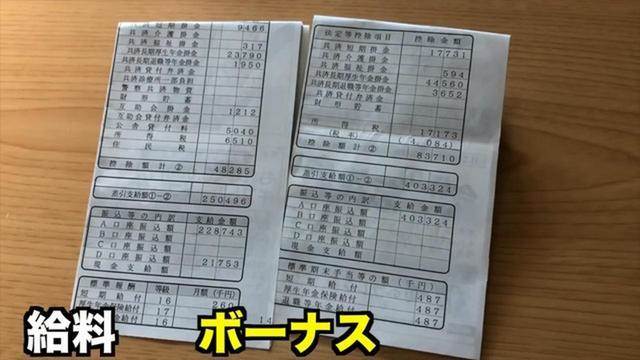 共済短期掛金 9466
共済介護掛金
共済福祉掛金 317
共済長期厚生年金掛金 23790
共済長期退職等年金掛金 1950
共済貸付弁済金
共済診療所一部負担
警察共済物資
財形貯蓄
互助会掛金 1212
互助会貸付弁済金
公舎貸付料 5040
所得税 6510
住民税
控除額計② 48285
差引支給額①-② 250496
振込等の内訳 支給金額
A口座振込額 228743
B口座振込額
C口座振込額
D口座振込額
現金支給額 21753
標準報酬 等級 月額(千円)
短期給付 16 260
厚生年金保険給付 17
退職等年金給付 16
法定等控除項目 控除金額
共済短期掛金 17731
共済介護掛金
共済福祉掛金 594
共済長期厚生年金掛金 44560
共済長期退職等年金掛金 3652
共済貸付弁済金
財形貯蓄
所得税 17173
(税率) (4.084)
控除額計② 83710
差引支給額①-② 403324
振込等の内訳 支給金額
A口座振込額 403324
B口座振込額
C口座振込額
D口座振込額
現金支給額
標準期末手当等の額(千円)
短期給付 487
厚生年金保険給付 487
退職等年金給付 487
14
給料 ボーナス